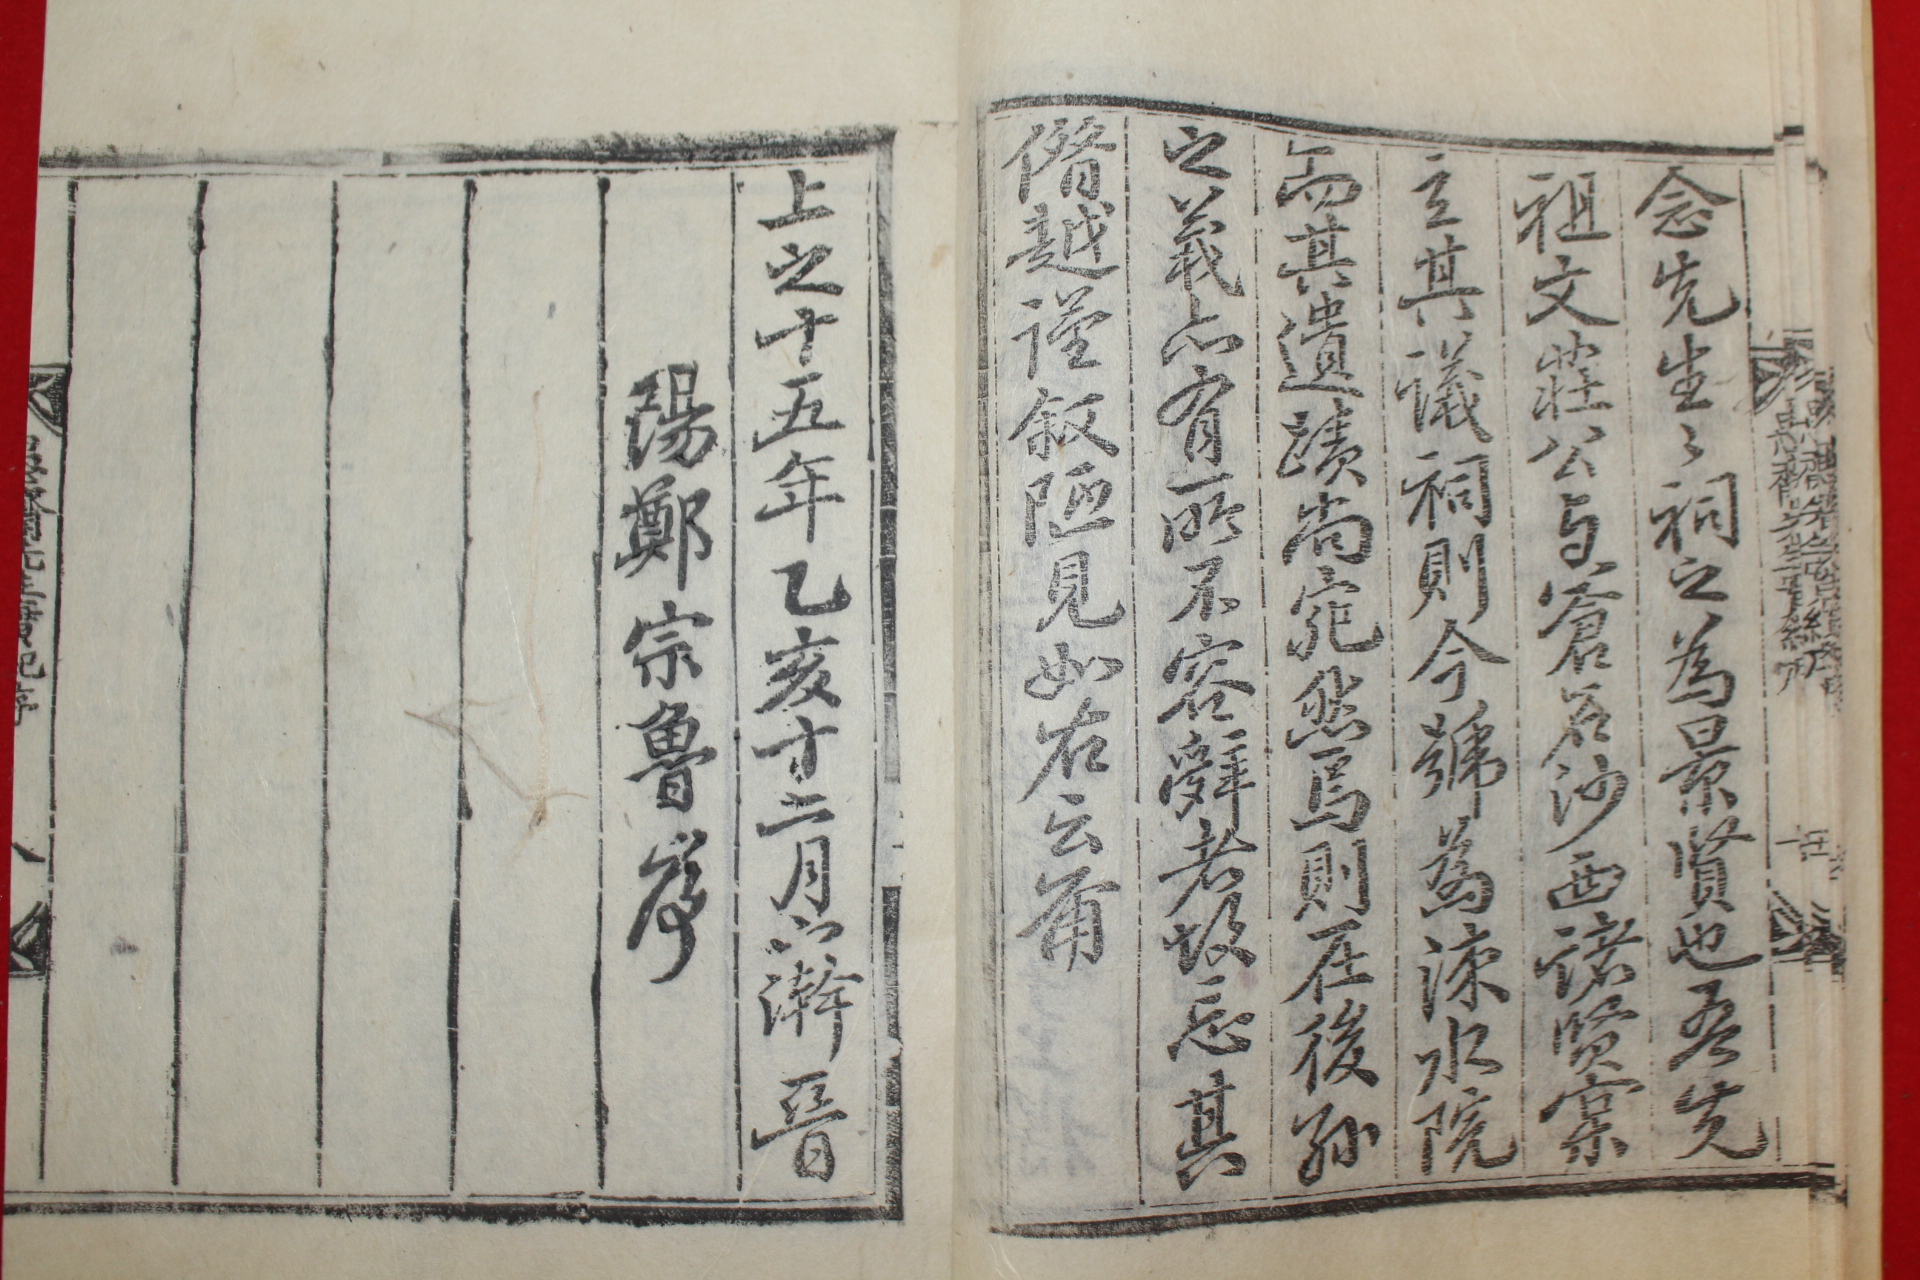 念先生〻祠之為景賢也吾先
祖文莊公与蒼石沙西諸賢寔
主其議祠則今號為涑水院
而其遺蹟尚宛然焉則在後孫
之義亦有所不容辭者故忘其
僭越謹叙陋見如右云爾
上之十五年乙亥十二月小澣晉
陽鄭宗魯序